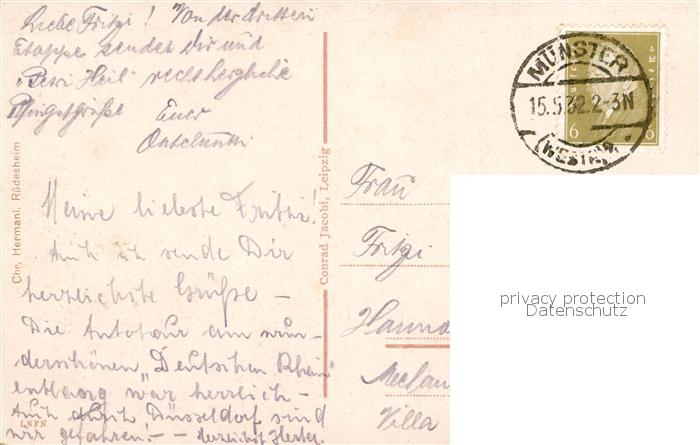 Liebe Fritzi! Von der dritten
Etappe sendet dir und
"Petri Heil" recht herzliche
Pfingstgrüße Euer
Meine liebste Fritzi!
Auch ich sende Dir
herzlichste Grüße –
Die Autotour am wun-
derschönen "Deutschen Rhein"
entlang war herrlich –
Auch durch Düsseldorf sind
wir gefahren! –
LNFN
Chr. Hermani, Rüdesheim
Conrad Jacobi, Leipzig
MÜNSTER
15.5.32.2-3N
(WESTF.)
6 6
Frau
Fritzi
Hanno
Villa
privacy protection
Datenschutz